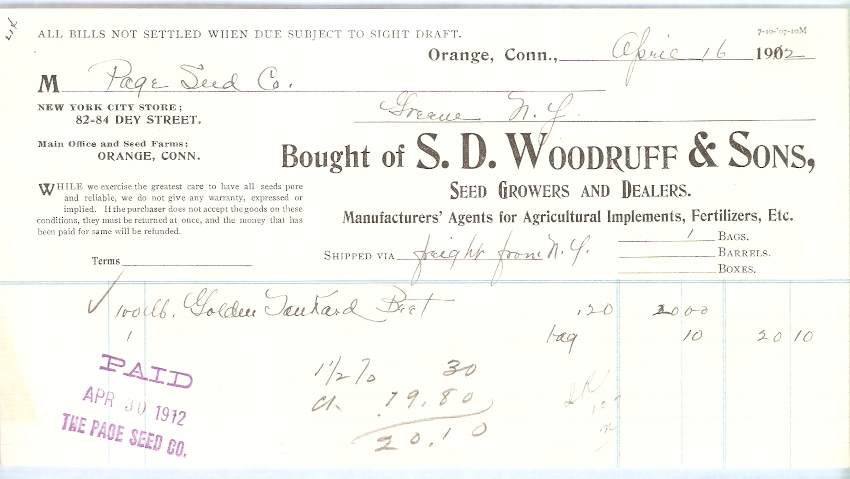 ALL BILLS NOT SETTLED WHEN DUE SUBJECT TO SIGHT DRAFT.
7-10-'07-10M
Orange, Conn., April 16 1912
M Page Seed Co.
Greene N.Y.
NEW YORK CITY STORE;
82-84 DEY STREET.
Main Office and Seed Farms;
ORANGE, CONN.
Bought of S. D. WOODRUFF & SONS,
SEED GROWERS AND DEALERS.
Manufacturers' Agents for Agricultural Implements, Fertilizers, Etc.
WHILE we exercise the greatest care to have all seeds pure
and reliable, we do not give any warranty, expressed or
implied. If the purchaser does not accept the goods on these
conditions, they must be returned at once, and the money that has
been paid for same will be refunded.
Terms
SHIPPED VIA freight from N.Y.
1 BAGS.
BARRELS.
BOXES.
100 lb. Golden Tankard Beet .20 20 00
1 bag 10 20 10
1 1/2 % 30
ck. 19.80
20.10
PAID
APR 30 1912
THE PAGE SEED CO.